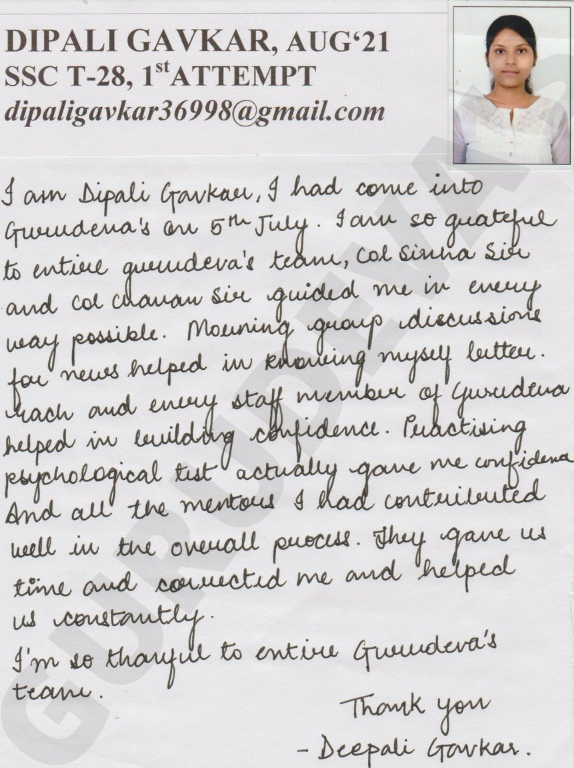 DIPALI GAVKAR, AUG‘21
SSC T-28, 1st ATTEMPT
dipaligavkar36998@gmail.com
I am Dipali Gavkar, I had come into
Gurudeva's on 5th July. I am so grateful
to entire gurudeva's team, Col Sinha Sir
and Col Chavan Sir guided me in every
way possible. Morning group discussions
for news helped in knowing myself better.
each and every staff member of Gurudeva
helped in building confidence. Practising
psychological test actually gave me confidence
And all the mentors I had contributed
well in the overall process. They gave us
time and corrected me and helped
us constantly.
I'm so thankful to entire Gurudeva's
team.
Thank you
- Deepali Gavkar.
GURUDEVA'S